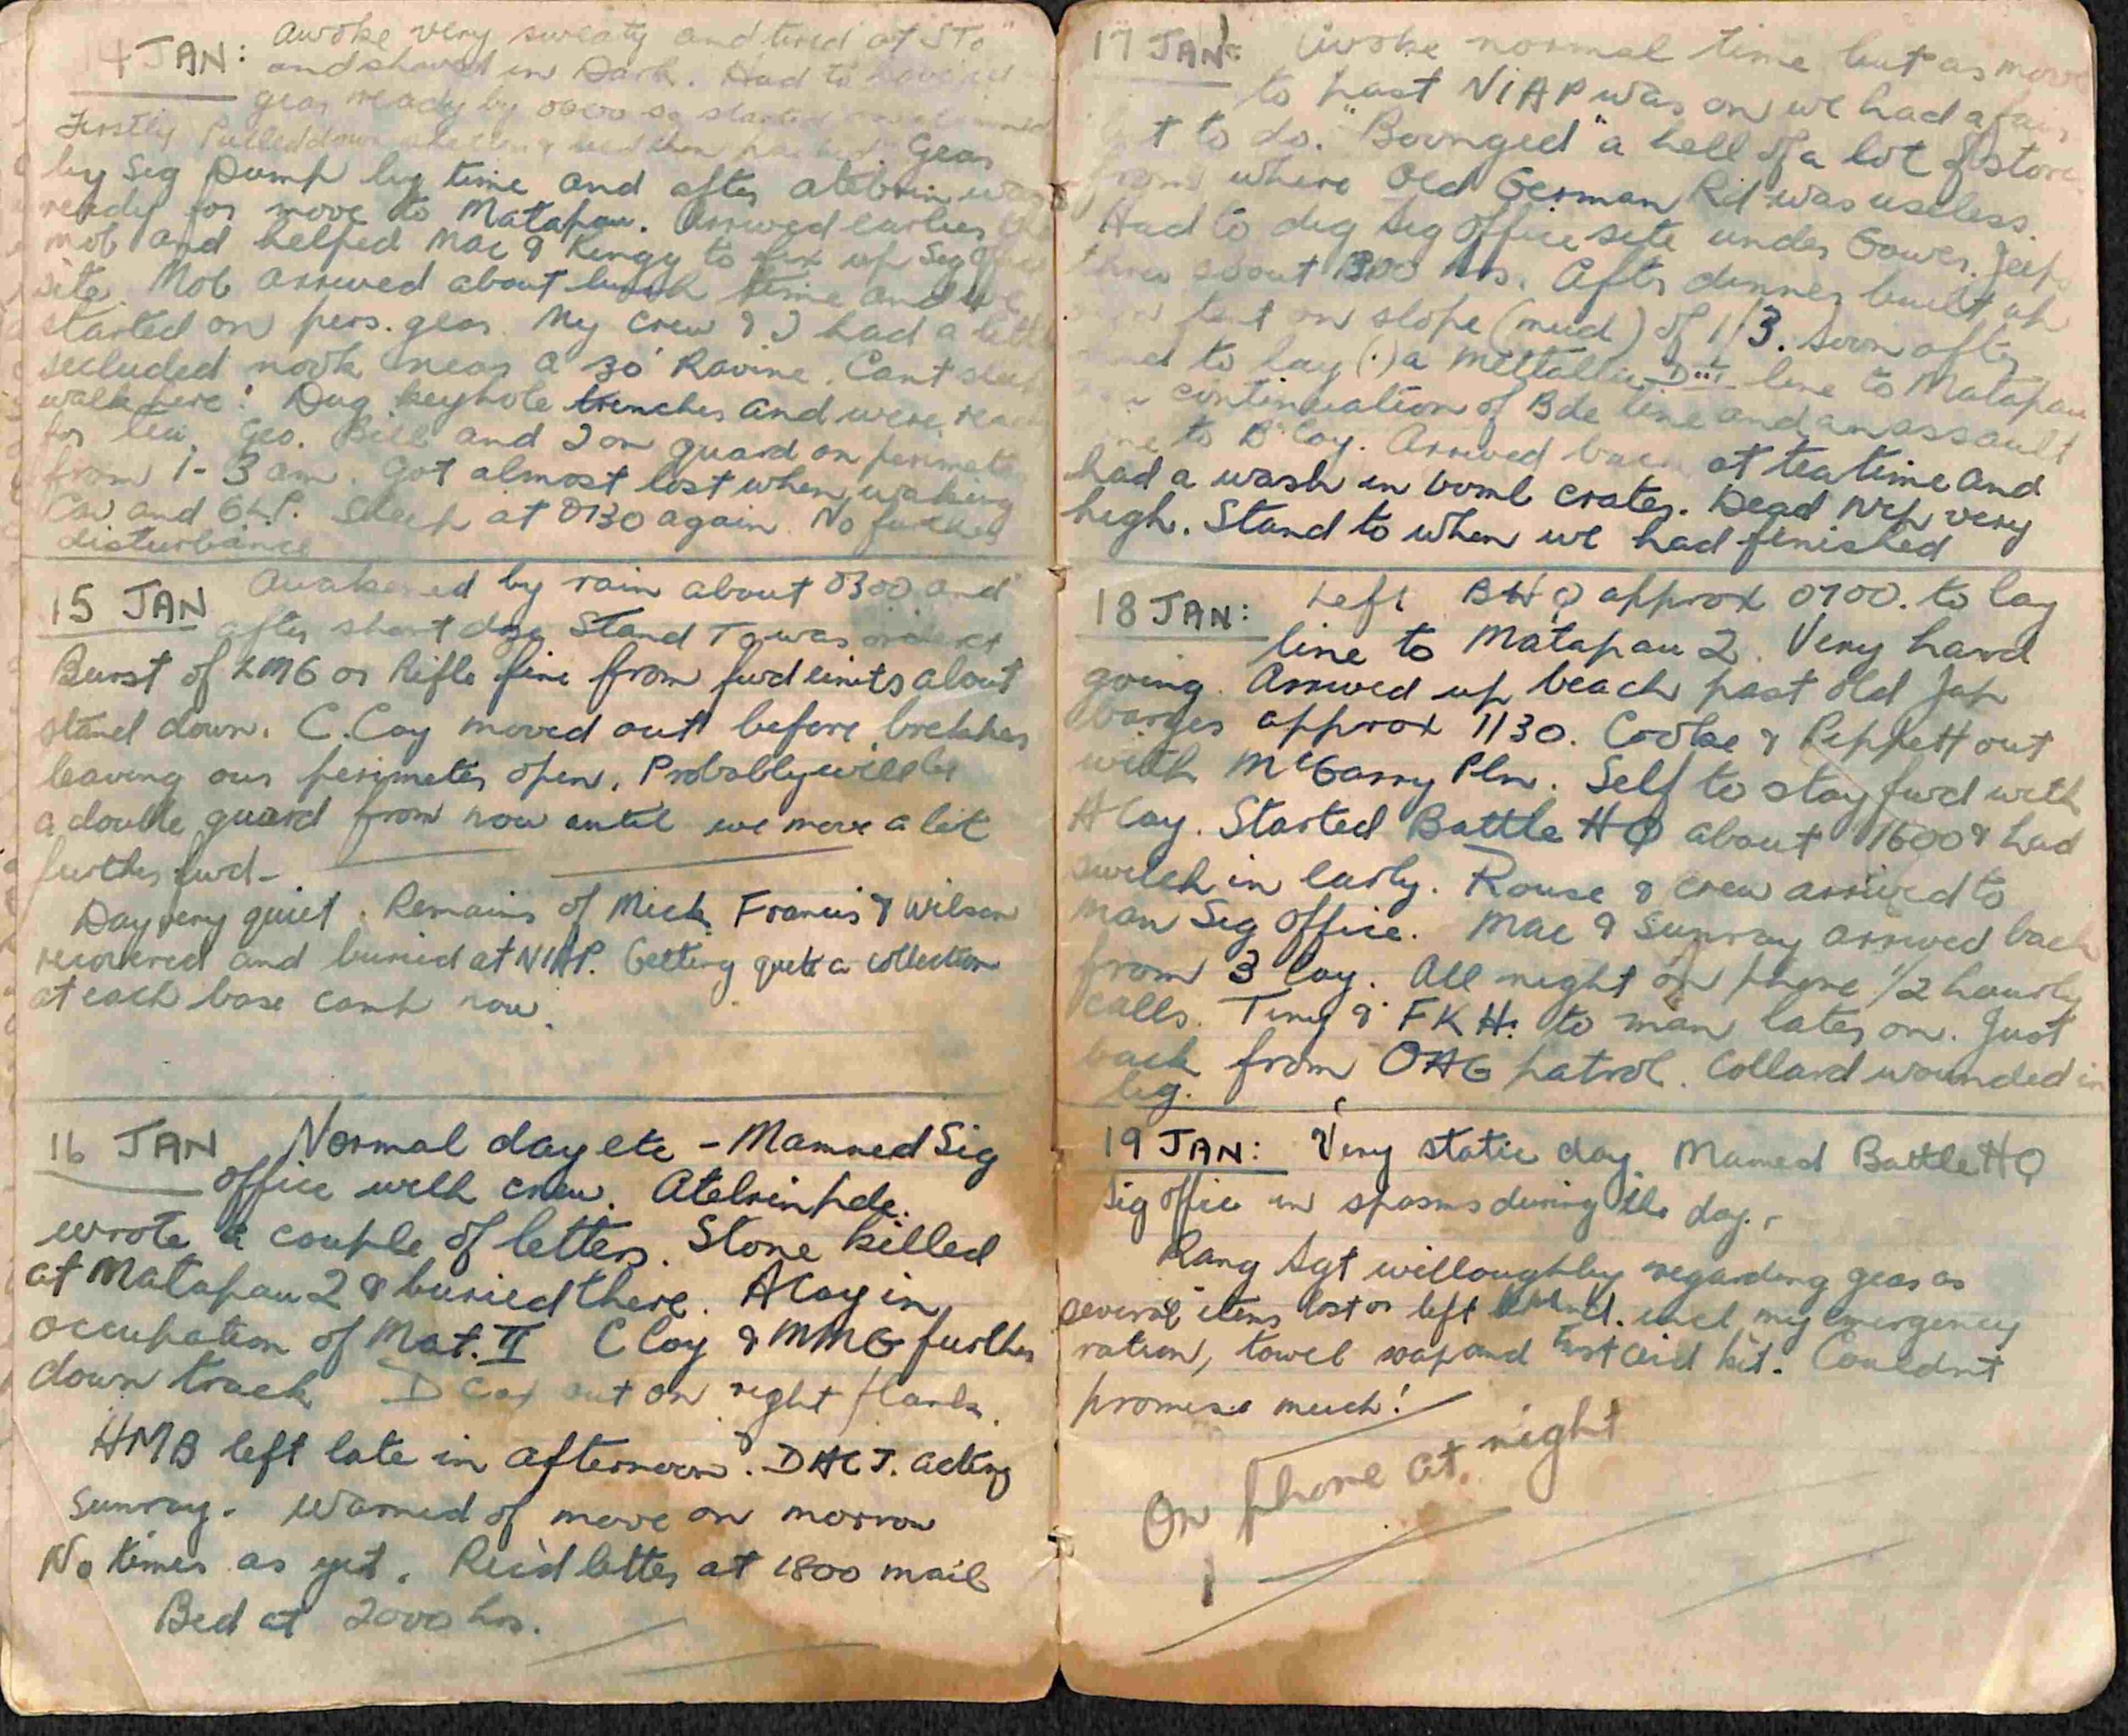 14 JAN: Awoke very sweaty and tired at "STo"
and shaved in Dark. Had to have
gear ready by so started
Firstly Pulled down & then packed. Gear
by Sig Dump by time and after atebrin was
ready for move to Matapau. Arrived earlier
mob and helped Mac & Kingy to fix up Sig
site. Mob arrived about lunch time and we
started on pers. gear. My crew & I had a little
secluded nook near a 30' Ravine. Cant sleep
walk here! Dug keyhole trenches and were ready
for tea. Geo. Bill and I on guard on perimeter
from 1-3 am. Got almost lost when waking
and Sleep at 0130 again. No further
disturbance
15 JAN Awakened by rain about 0300 and
after short doze Stand To was
Burst of LMG or Rifle fire from fwd units about
stand down. C. Coy moved out before brekker
leaving our perimeter open. Probably will be
a double guard from now until we move a bit
further fwd-
Day very quiet. Remains of Mick Francis & Wilson
recovered and buried at NIAP. Getting quite a collection
at each base camp now.
16 JAN Normal day etc - Mamned Sig
office with crew. Atebrin pde.
wrote a couple of letters. Stone killed
at Matapau 2 & buried there. A Coy in
occupation of Mat. II C Coy & MMG further
down track D Coy out on right flank.
HMB left late in afternoon. DHCJ. acting
Sunray. Warned of move on morrow
No times as yet. Rec'd letter at 1800 mail
Bed at 2000 hrs.
17 JAN: Awoke normal time but as move
to past NIAP was on we had a fair
t to do. "Boonged" a hell of a lot of stores
from where Old German Rd was useless.
Had to dig Sig office site under Gower. Jeep
thru about 1300 hrs. After dinner built up
tent on slope (mud) of 1/3. Soon after
to lay (!) a mettallic line to Matapau
continuation of Bde line and an assault
to B Coy. Arrived back at tea time and
had a wash in bomb crater. Dead Nip very
high. Stand to when we had finished
18 JAN: Left BHQ approx 0700. to lay
line to Matapau 2. Very hard
going. Arrived up beach past old Jap
barges approx 1130. Cooke & Peppett out
with McGarry Pln. Self to stay fwd with
A Coy. Started Battle HQ about 1600 & had
switch in early. Rouse & crew arrived to
man Sig Office. Mac & Sunray arrived back
from 3 Coy. All night on phone 1/2 hourly
calls. Tiny & FKH. to man later on. Just
back from OAG patrol. Collard wounded in
leg.
19 JAN: Very static day. Manned Battle HQ
Sig office in spasms during the day.
Rang Sgt Willoughby regarding gear as
several items lost or left behind. incl my emergency
ration, towel soap and first aid kit. Couldn't
promise much!
On phone at night